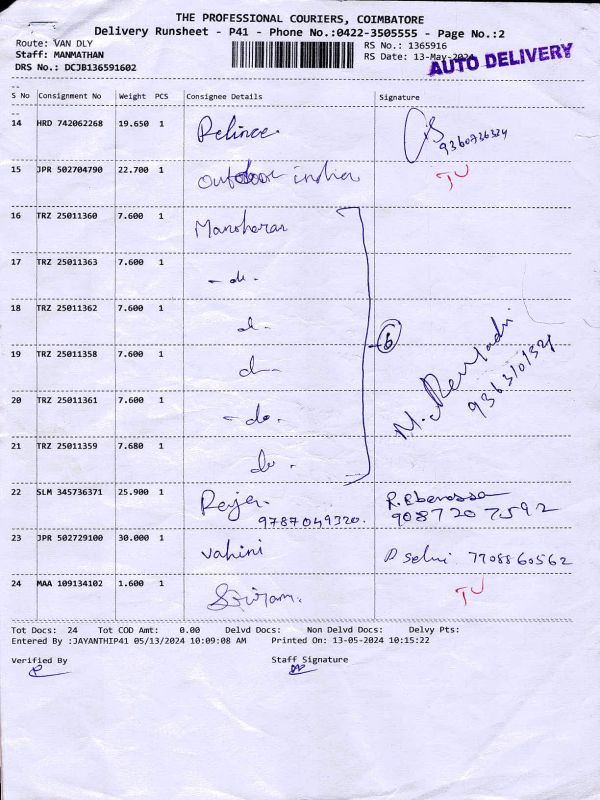 THE PROFESSIONAL COURIERS, COIMBATORE
Delivery Runsheet - P41 - Phone No.:0422-3505555 - Page No.:2
Route: VAN DLY
RS No.: 1365916
Staff: MANMATHAN
RS Date: 13-May-2024
DRS No.: DCJB136591602
AUTO DELIVERY
S No Consignment No Weight PCS Consignee Details Signature
14 HRD 742062268 19.650 1 Relince
15 JPR 502704790 22.700 1 Outdoor india TU
16 TRZ 25011360 7.600 1 Manoharan
17 TRZ 25011363 7.600 1 - do -
18 TRZ 25011362 7.600 1
19 TRZ 25011358 7.600 1
6
20 TRZ 25011361 7.600 1 - do -
21 TRZ 25011359 7.680 1 do -
22 SLM 345736371 25.900 1
9787049320. 9087207592
23 JPR 502729100 30.000 1 vahini P selvi 7708860562
24 MAA 109134102 1.600 1 Sriram. TU
Tot Docs: 24 Tot COD Amt: 0.00 Delvd Docs: Non Delvd Docs: Delvy Pts:
Entered By :JAYANTHIP41 05/13/2024 10:09:08 AM Printed On: 13-05-2024 10:15:22
Verified By Staff Signature